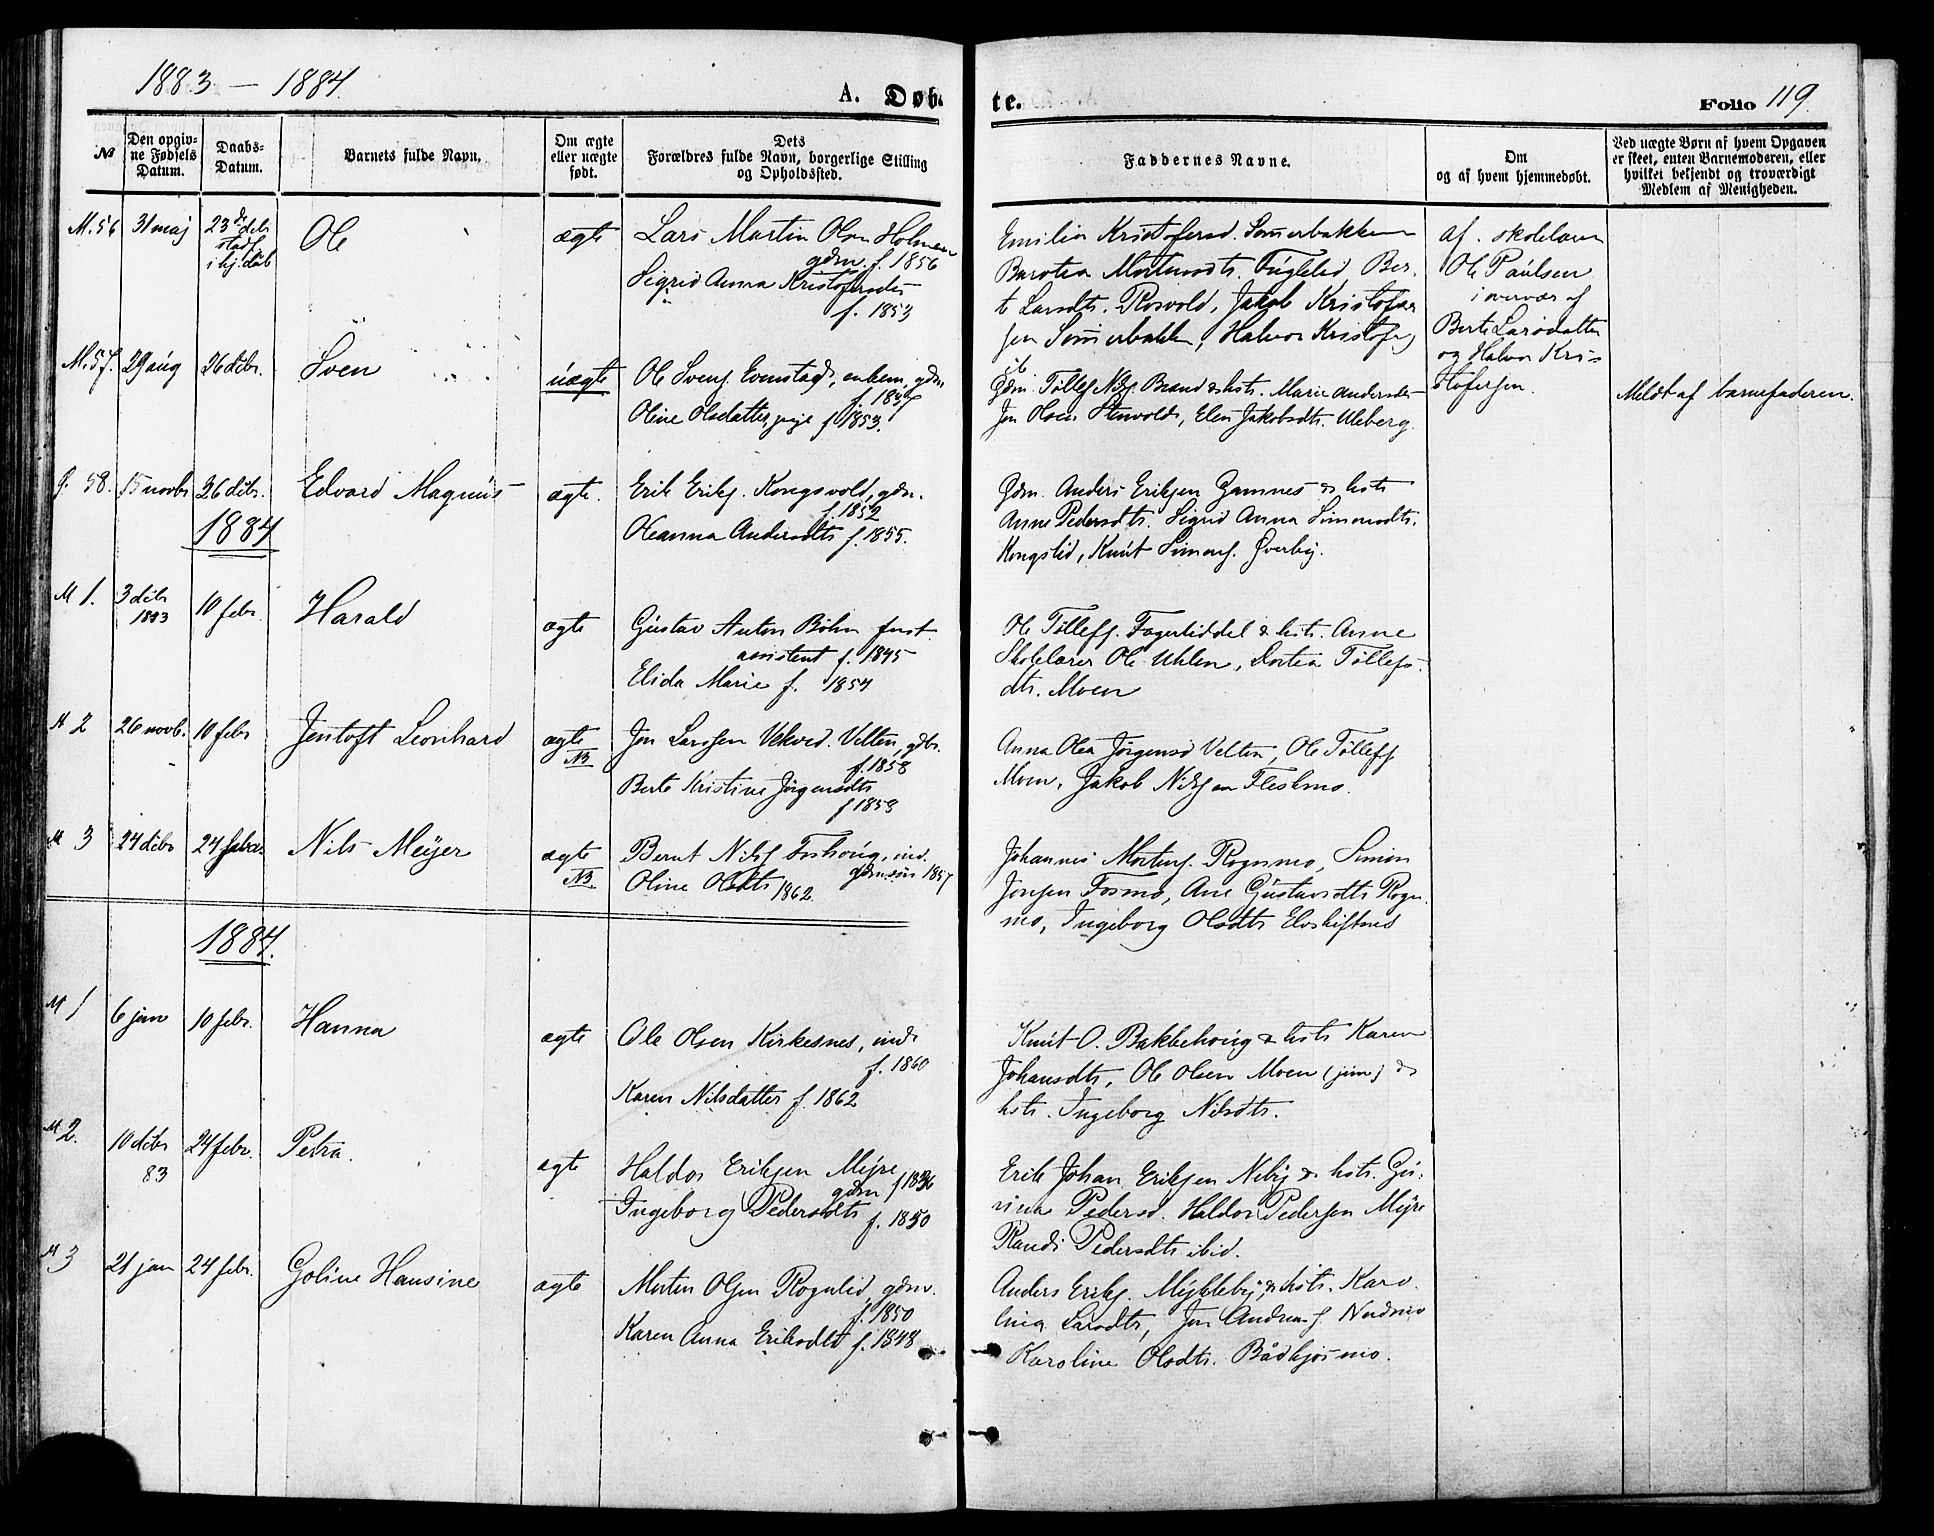 1883 — 1884.
A. Døb-
te.
Folio 119.
№
Den opgiv-
ne Fødsels
Datum.
Daabs-
Datum.
Barnets fulde Navn.
Om ægte
eller uægte
født.
Dets
Forældres fulde Navn, borgerlige Stilling
og Opholdssted.
Faddernes Navne.
Om
og af hvem hjemmedøbt.
Ved uægte Børn af hvem Opgaven
er skeet, enten Barnemoderen, eller
hvilket bekjendt og troværdigt
Medlem af Menigheden.
M. 56
31 maj
23de debr
stadf.
i hj.døb
Ole
ægte
Lars Martin Olsen Holmen
gdm. f. 1856
Sigrid Anna Kristofersdtr
f. 1853
Emilia Kristofersd. Sommerbakken
Barotea Mortensdtr. Fuglelid, Ber-
te Larsdtr. Rosvold, Jakob Kristofer
sen Sommerbakken, Halvor Kristofersen
ib
af skolelærer
Ole Paulsen
i overvær af
Berte Larsdatter
og Halvor Kri-
stofersen.
M. 57.
29 aug
26 debr.
Sven
uægte
Ole Svens. Evenstad, enkem., gdm
f. 1847
Oline Olsdatter, pige f 1853.
Gdm. Tollef Nils. Brand & hstr. Marie Andersdtr
Jon Olsen Stenvold, Elen Jakobsdtr. Uleberg.
Meldt af barnefaderen.
P. 58.
15 novbr
26 debr.
Edvard Magnus
ægte.
Erik Eriks. Kongsvold, gdm.
f. 1852
Oleanna Andersdtr f. 1855.
Gdm. Anders Eriksen Zamnes & hstr
Anne Pedersdtr. Sigrid Anna Simonsdtr.
Kongslid, Knut Simons. Øverby.
1884
M 1.
3 debr
1883
10 febr
Harald
ægte
Gustav Anton Bøhn forst.
assistent f. 1845
Elida Marie f. 1854
Ole Tollefs. Fagerliddel & hstr. Anne
Skolelærer Ole Uhlen, Dortea Tollefs-
dtr. Moen
M 2
26 novb.
10 febr
Jentoft Leonhard
ægte
NB
Jon Larssen Vekved. Velten, gdbr.
f. 1858
Berte Kristine Jørgensdtr
f 1859
Anna Olea Jørgensd Velten, Ole Tollefs
Moen, Jakob Nilssen Fleskmo.
M 3
24 debr
24 febr.
Nils Meyer
ægte
NB
Bernt Nils. Foshoug, ind.
gdmsøn 1857
Oline Olsdtr 1862.
Johannes Mortens. Rognmo, Simon
Jonsen Fosmo, Ane Gustavsdtr Rogn-
mo, Ingeborg Olsdtr Elvskiftnes
1884.
M 1
6 jan
10 febr.
Hanna
ægte
Ole Olsen Kirkesnes, indr
f. 1860
Karen Nilsdatter f. 1862
Knut O. Bakkehoug & hstr Karen
Johansdtr, Ole Olsen Moen (jun) &
hstr. Ingeborg Nilsdtr.
M 2.
10 debr
83
24 febr.
Petra.
ægte
Haldor Eriksen Mejre
gdm f 1836
Ingeborg Pedersdtr f. 1850
Erik Johan Eriksen Neby & hstr. Gu-
rina Pedersd. Haldor Pedersen Mejre
Randi Pedersdtr ibid.
M 3
21 jan
24 febr.
Goline Hansine
ægte
Morten Olsen Rognlid, gdm.
f. 1850
Karen Anna Eriksdtr f. 1848
Anders Eriks. Mykleby, & hstr. Karo
lina Larsdtr, Jon Andreass Nordmo
Karoline Olsdtr. Bådkjosmo.